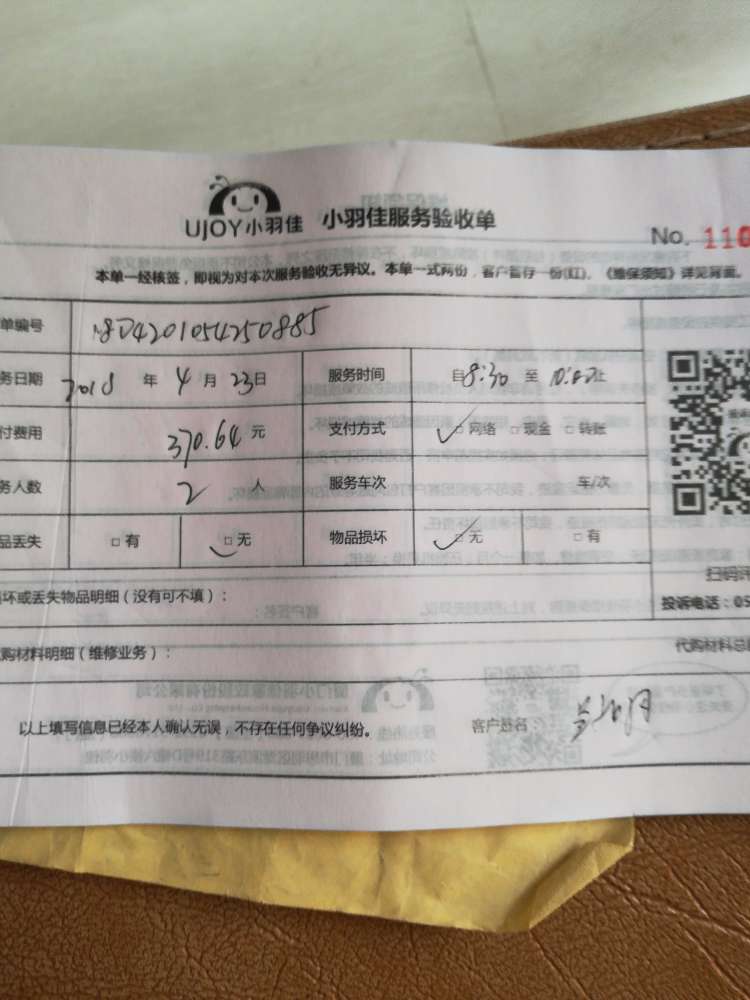 UJOY小羽佳 小羽佳服务验收单
No. 110
本单一经核签，即视为对本次服务验收无异议。本单一式两份，客户暂存一份(红)。《维保须知》详见背面。
单编号 18D4201054250885
务日期 2018 年 4 月 23日 服务时间 自8:30 至 止
付费用 370.64 元 支付方式 ✓□网络 □现金 □转账
务人数 2 人 服务车次 车/次
品丢失 □有 ✓□无 物品损坏 ✓□无 □有
损坏或丢失物品明细（没有可不填）：
扫码评
投诉电话：05
购材料明细（维修业务）： 代购材料总
以上填写信息已经本人确认无误，不存在任何争议纠纷。 客户签名：